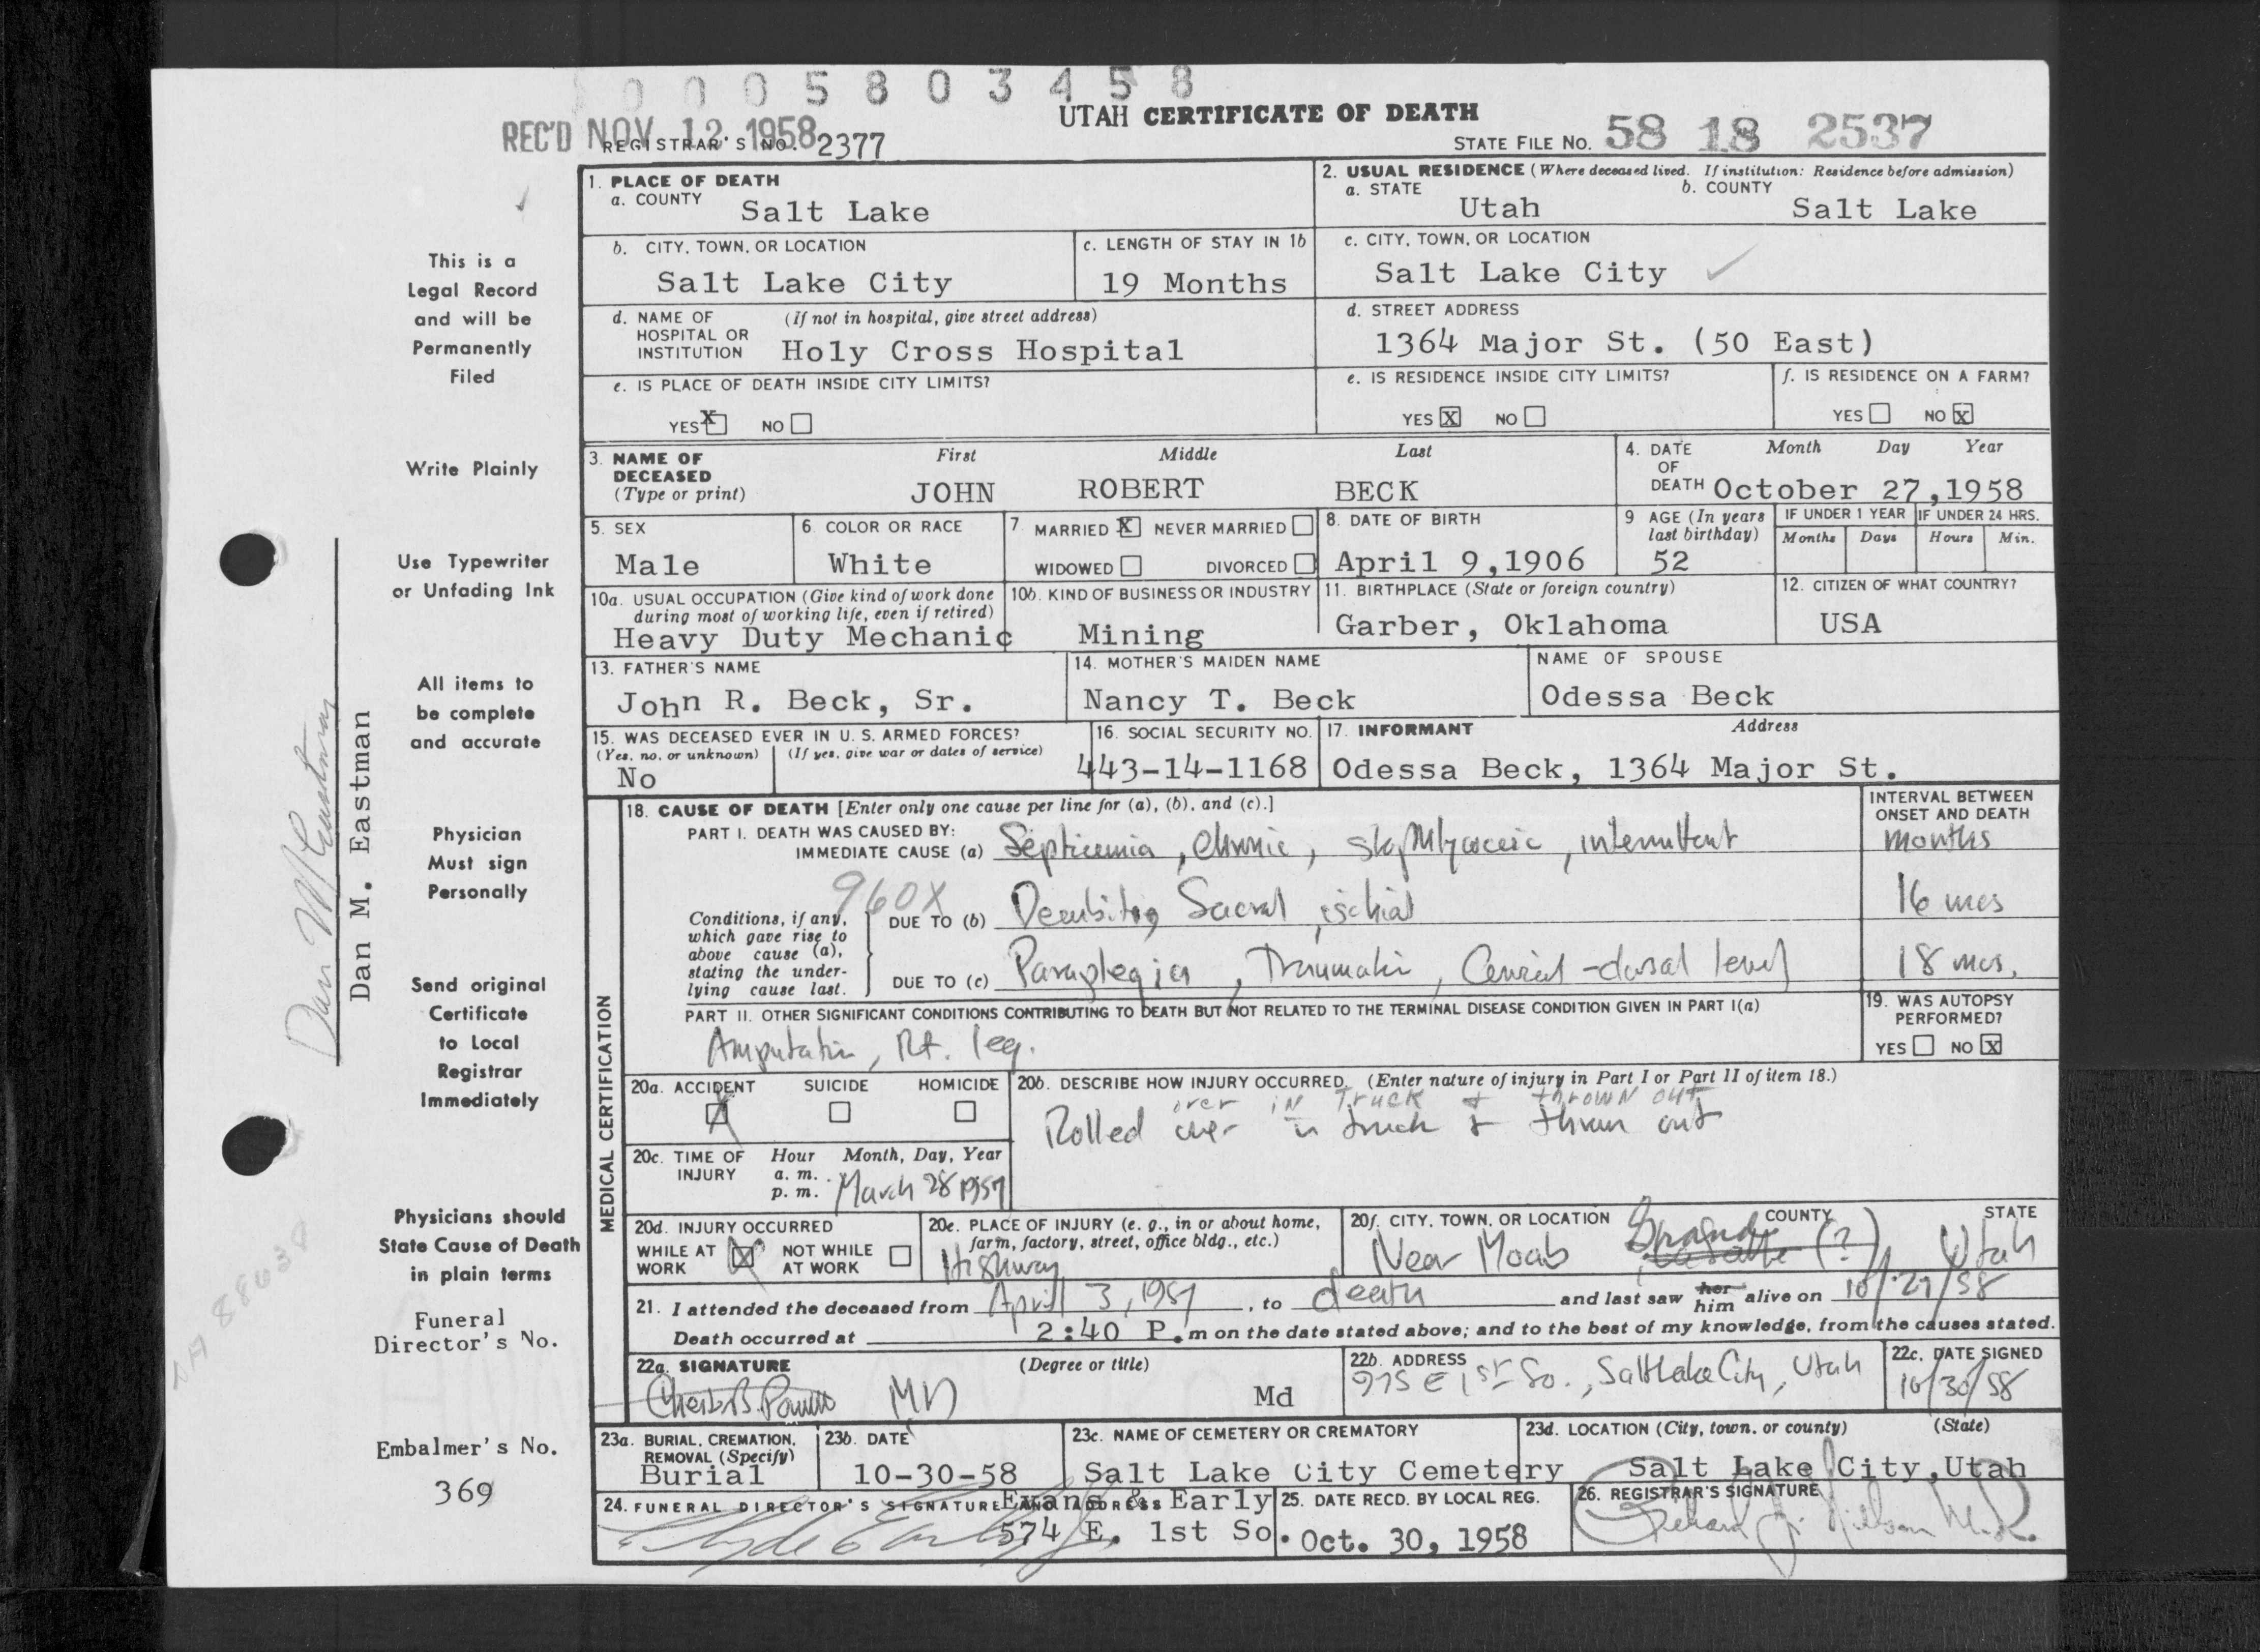 0 0 0 5 8 0 3 4 5 8
UTAH CERTIFICATE OF DEATH
REC'D NOV 12 1958
REGISTRAR'S NO. 2377
STATE FILE NO. 58 18 2537
1. PLACE OF DEATH
a. COUNTY Salt Lake
2. USUAL RESIDENCE (Where deceased lived. If institution: Residence before admission)
a. STATE Utah b. COUNTY Salt Lake
b. CITY, TOWN, OR LOCATION Salt Lake City
c. LENGTH OF STAY IN 1b 19 Months
c. CITY, TOWN, OR LOCATION Salt Lake City
d. NAME OF HOSPITAL OR INSTITUTION (If not in hospital, give street address) Holy Cross Hospital
d. STREET ADDRESS 1364 Major St. (50 East)
e. IS PLACE OF DEATH INSIDE CITY LIMITS?
YES X NO
e. IS RESIDENCE INSIDE CITY LIMITS?
YES X NO
f. IS RESIDENCE ON A FARM?
YES NO X
3. NAME OF DECEASED (Type or print) First Middle Last
JOHN ROBERT BECK
4. DATE OF DEATH Month Day Year
October 27,1958
5. SEX Male
6. COLOR OR RACE White
7. MARRIED X NEVER MARRIED
WIDOWED DIVORCED
8. DATE OF BIRTH April 9,1906
9 AGE (In years last birthday) 52
IF UNDER 1 YEAR Months Days
IF UNDER 24 HRS. Hours Min.
10a. USUAL OCCUPATION (Give kind of work done during most of working life, even if retired)
Heavy Duty Mechanic
10b. KIND OF BUSINESS OR INDUSTRY Mining
11. BIRTHPLACE (State or foreign country) Garber, Oklahoma
12. CITIZEN OF WHAT COUNTRY? USA
13. FATHER'S NAME John R. Beck, Sr.
14. MOTHER'S MAIDEN NAME Nancy T. Beck
NAME OF SPOUSE Odessa Beck
15. WAS DECEASED EVER IN U. S. ARMED FORCES?
(Yes, no, or unknown) (If yes, give war or dates of service)
No
16. SOCIAL SECURITY NO. 443-14-1168
17. INFORMANT Address
Odessa Beck, 1364 Major St.
MEDICAL CERTIFICATION
18. CAUSE OF DEATH [Enter only one cause per line for (a), (b), and (c).]
INTERVAL BETWEEN ONSET AND DEATH
PART I. DEATH WAS CAUSED BY:
IMMEDIATE CAUSE (a) Septicemia, chronic, staphlycoccic, intermittent months
960X
Conditions, if any, which gave rise to above cause (a), stating the underlying cause last.
DUE TO (b) Decubiti, Sacral, ischial 16 mos
DUE TO (c) Paraplegia, Traumatic, Cervical-dorsal level 18 mos.
PART II. OTHER SIGNIFICANT CONDITIONS CONTRIBUTING TO DEATH BUT NOT RELATED TO THE TERMINAL DISEASE CONDITION GIVEN IN PART I(a)
Amputation, Rt. leg.
19. WAS AUTOPSY PERFORMED?
YES NO X
20a. ACCIDENT X SUICIDE HOMICIDE
20b. DESCRIBE HOW INJURY OCCURRED. (Enter nature of injury in Part I or Part II of item 18.)
over in Truck & thrown out
Rolled over in truck & thrown out
20c. TIME OF INJURY Hour Month, Day, Year
a. m.
p. m. March 28 1957
20d. INJURY OCCURRED
WHILE AT WORK X NOT WHILE AT WORK
20e. PLACE OF INJURY (e. g., in or about home, farm, factory, street, office bldg., etc.)
Highway
20f. CITY, TOWN, OR LOCATION COUNTY STATE
Near Moab Grand (?) Utah
21. I attended the deceased from April 3, 1957, to death and last saw her him alive on 10/27/58
Death occurred at 2:40 P.m on the date stated above; and to the best of my knowledge, from the causes stated.
22a. SIGNATURE (Degree or title)
MD Md
22b. ADDRESS
975 E 1st So., Salt Lake City, Utah
22c. DATE SIGNED
10/30/58
23a. BURIAL, CREMATION, REMOVAL (Specify) Burial
23b. DATE 10-30-58
23c. NAME OF CEMETERY OR CREMATORY Salt Lake City Cemetery
23d. LOCATION (City, town, or county) (State)
Salt Lake City, Utah
24. FUNERAL DIRECTOR'S SIGNATURE AND ADDRESS
Evans & Early
574 E. 1st So.
25. DATE RECD. BY LOCAL REG.
Oct. 30, 1958
26. REGISTRAR'S SIGNATURE
This is a
Legal Record
and will be
Permanently
Filed
Write Plainly
Use Typewriter
or Unfading Ink
All items to
be complete
and accurate
Physician
Must sign
Personally
Send original
Certificate
to Local
Registrar
Immediately
Physicians should
State Cause of Death
in plain terms
Funeral
Director's No.
Embalmer's No.
369
Dan M Eastman
Dan M. Eastman